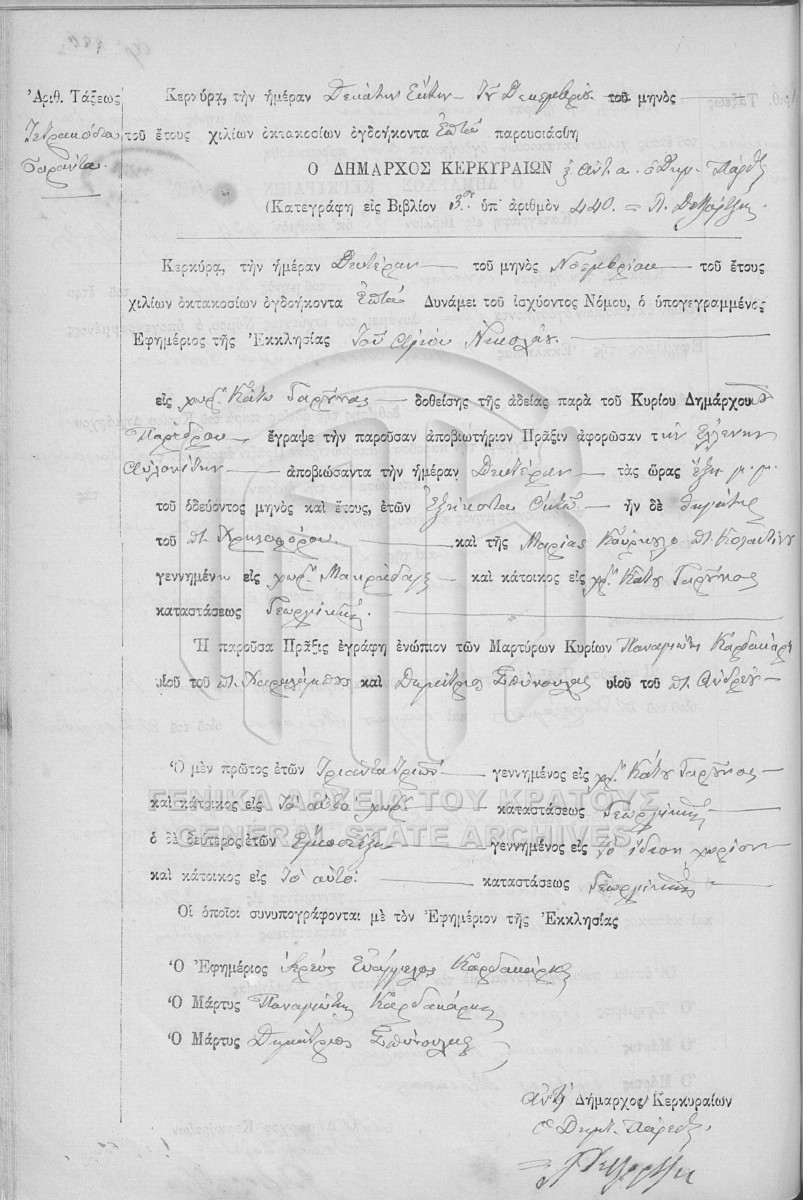 Ἀριθ. Τάξεως
Τετρακόσια
Σαράντα.
Κερκύρᾳ, τὴν ἡμέραν Δεκάτην Ἕκτην τοῦ Δεκεμβρίου τοῦ μηνὸς
τοῦ ἔτους χιλίων ὀκτακοσίων ὀγδοήκοντα Ἑπτά παρουσιάσθη
Ο ΔΗΜΑΡΧΟΣ ΚΕΡΚΥΡΑΙΩΝ ὁ Δημ. Πάρεδρ.
(Κατεγράφη εἰς Βιβλίον 3ον ὑπ' ἀριθμὸν 440 =
Κερκύρᾳ, τὴν ἡμέραν Δευτέραν τοῦ μηνὸς Νοεμβρίου τοῦ ἔτους
χιλίων ὀκτακοσίων ὀγδοήκοντα Ἑπτά Δυνάμει τοῦ ἰσχύοντος Νόμου, ὁ ὑπογεγραμμένος
Ἐφημέριος τῆς Ἐκκλησίας Τοῦ Ἁγίου Νικολάου
εἰς χωρ. Κάτω Γαρούνας δοθείσης τῆς ἀδείας παρὰ τοῦ Κυρίου Δημάρχου
Παρέδρου ἔγραψε τὴν παροῦσαν ἀποβιωτήριον Πρᾶξιν ἀφορῶσαν τὴν Ἑλλένην
Αὐλωνίτην ἀποβιώσαντα τὴν ἡμέραν Δευτέραν τὰς ὥρας ἕξη μ.μ.
τοῦ ὁδεύοντος μηνὸς καὶ ἔτους, ἐτῶν Ἑξήκοντα Ὀκτώ ἦν δὲ θυγάτηρ
τοῦ π. Χριστοφόρου καὶ τῆς Μαρίας π.
γεννημένη εἰς χωρ. Μακράδαις καὶ κάτοικος εἰς χρ. Κάτω Γαρούνας
καταστάσεως Γεωργικῆς.
Ἡ παροῦσα Πρᾶξις ἐγράφη ἐνώπιον τῶν Μαρτύρων Κυρίων Παναγιώτης Καρδακάρης
υἱοῦ τοῦ π. Χαραλάμπους καὶ Δημήτριος Σπίνουλας υἱοῦ τοῦ π. Ἀνδρέου
Ὁ μὲν πρῶτος ἐτῶν Τριάντα Τριῶν γεννημένος εἰς χρ. Κάτω Γαρούνας
καὶ κάτοικος εἰς Τὸ αὐτὸ χωρ. καταστάσεως Γεωργικῆς
ὁ δὲ δεύτερος ἐτῶν Εἴκοσι ἕξη γεννημένος εἰς Τὸ ἴδιον χωρίον
καὶ κάτοικος εἰς Τὸ αὐτό. καταστάσεως Γεωργικῆς
Οἱ ὁποῖοι συνυπογράφονται μὲ τὸν Ἐφημέριον τῆς Ἐκκλησίας
Ὁ Ἐφημέριος Ἱερεὺς Εὐάγγελος Καρδακάρης
Ὁ Μάρτυς Παναγιώτης Καρδακάρης
Ὁ Μάρτυς Δημήτριος Σπίνουλας
Δήμαρχος Κερκυραίων
ὁ Δημ. Πάρεδρ.
ΓΕΝΙΚΑ ΑΡΧΕΙΑ ΤΟΥ ΚΡΑΤΟΥΣ
GENERAL STATE ARCHIVES